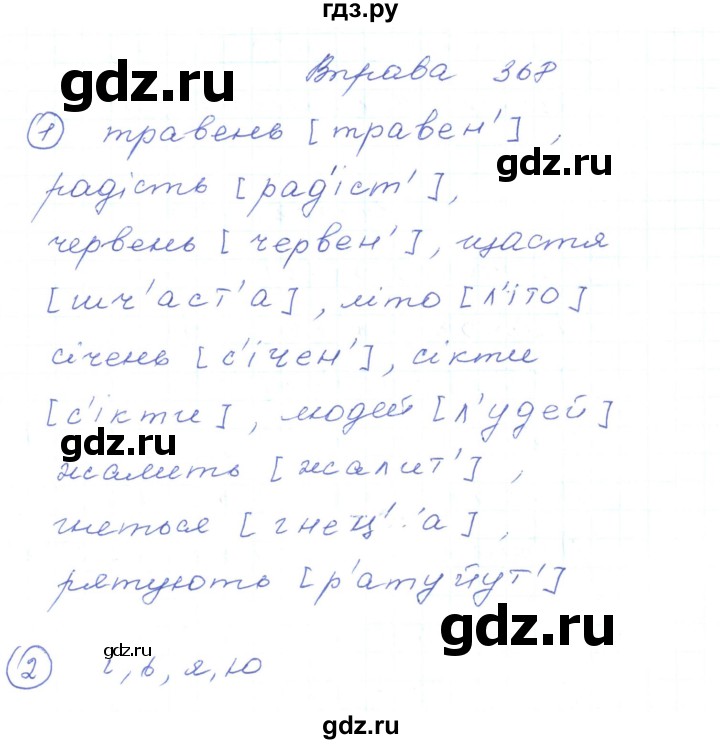 гдз.ру
gdz.ru
Вправа 368
1 травень [травен'],
gdz.ru
радість [рад'іст'],
червень [червен'], щастя
[шч'аст'а], літо [л'іто]
січень [с'ічен'], сікти
gdz.ru
[с'ікти], людей [л'удей]
gdz.ru
жалить [жалит'],
гнеться [гнец':а],
рятують [р'атуйут']
gdz.ru
gdz.ru
2 і, ь, я, ю
gdz.ru